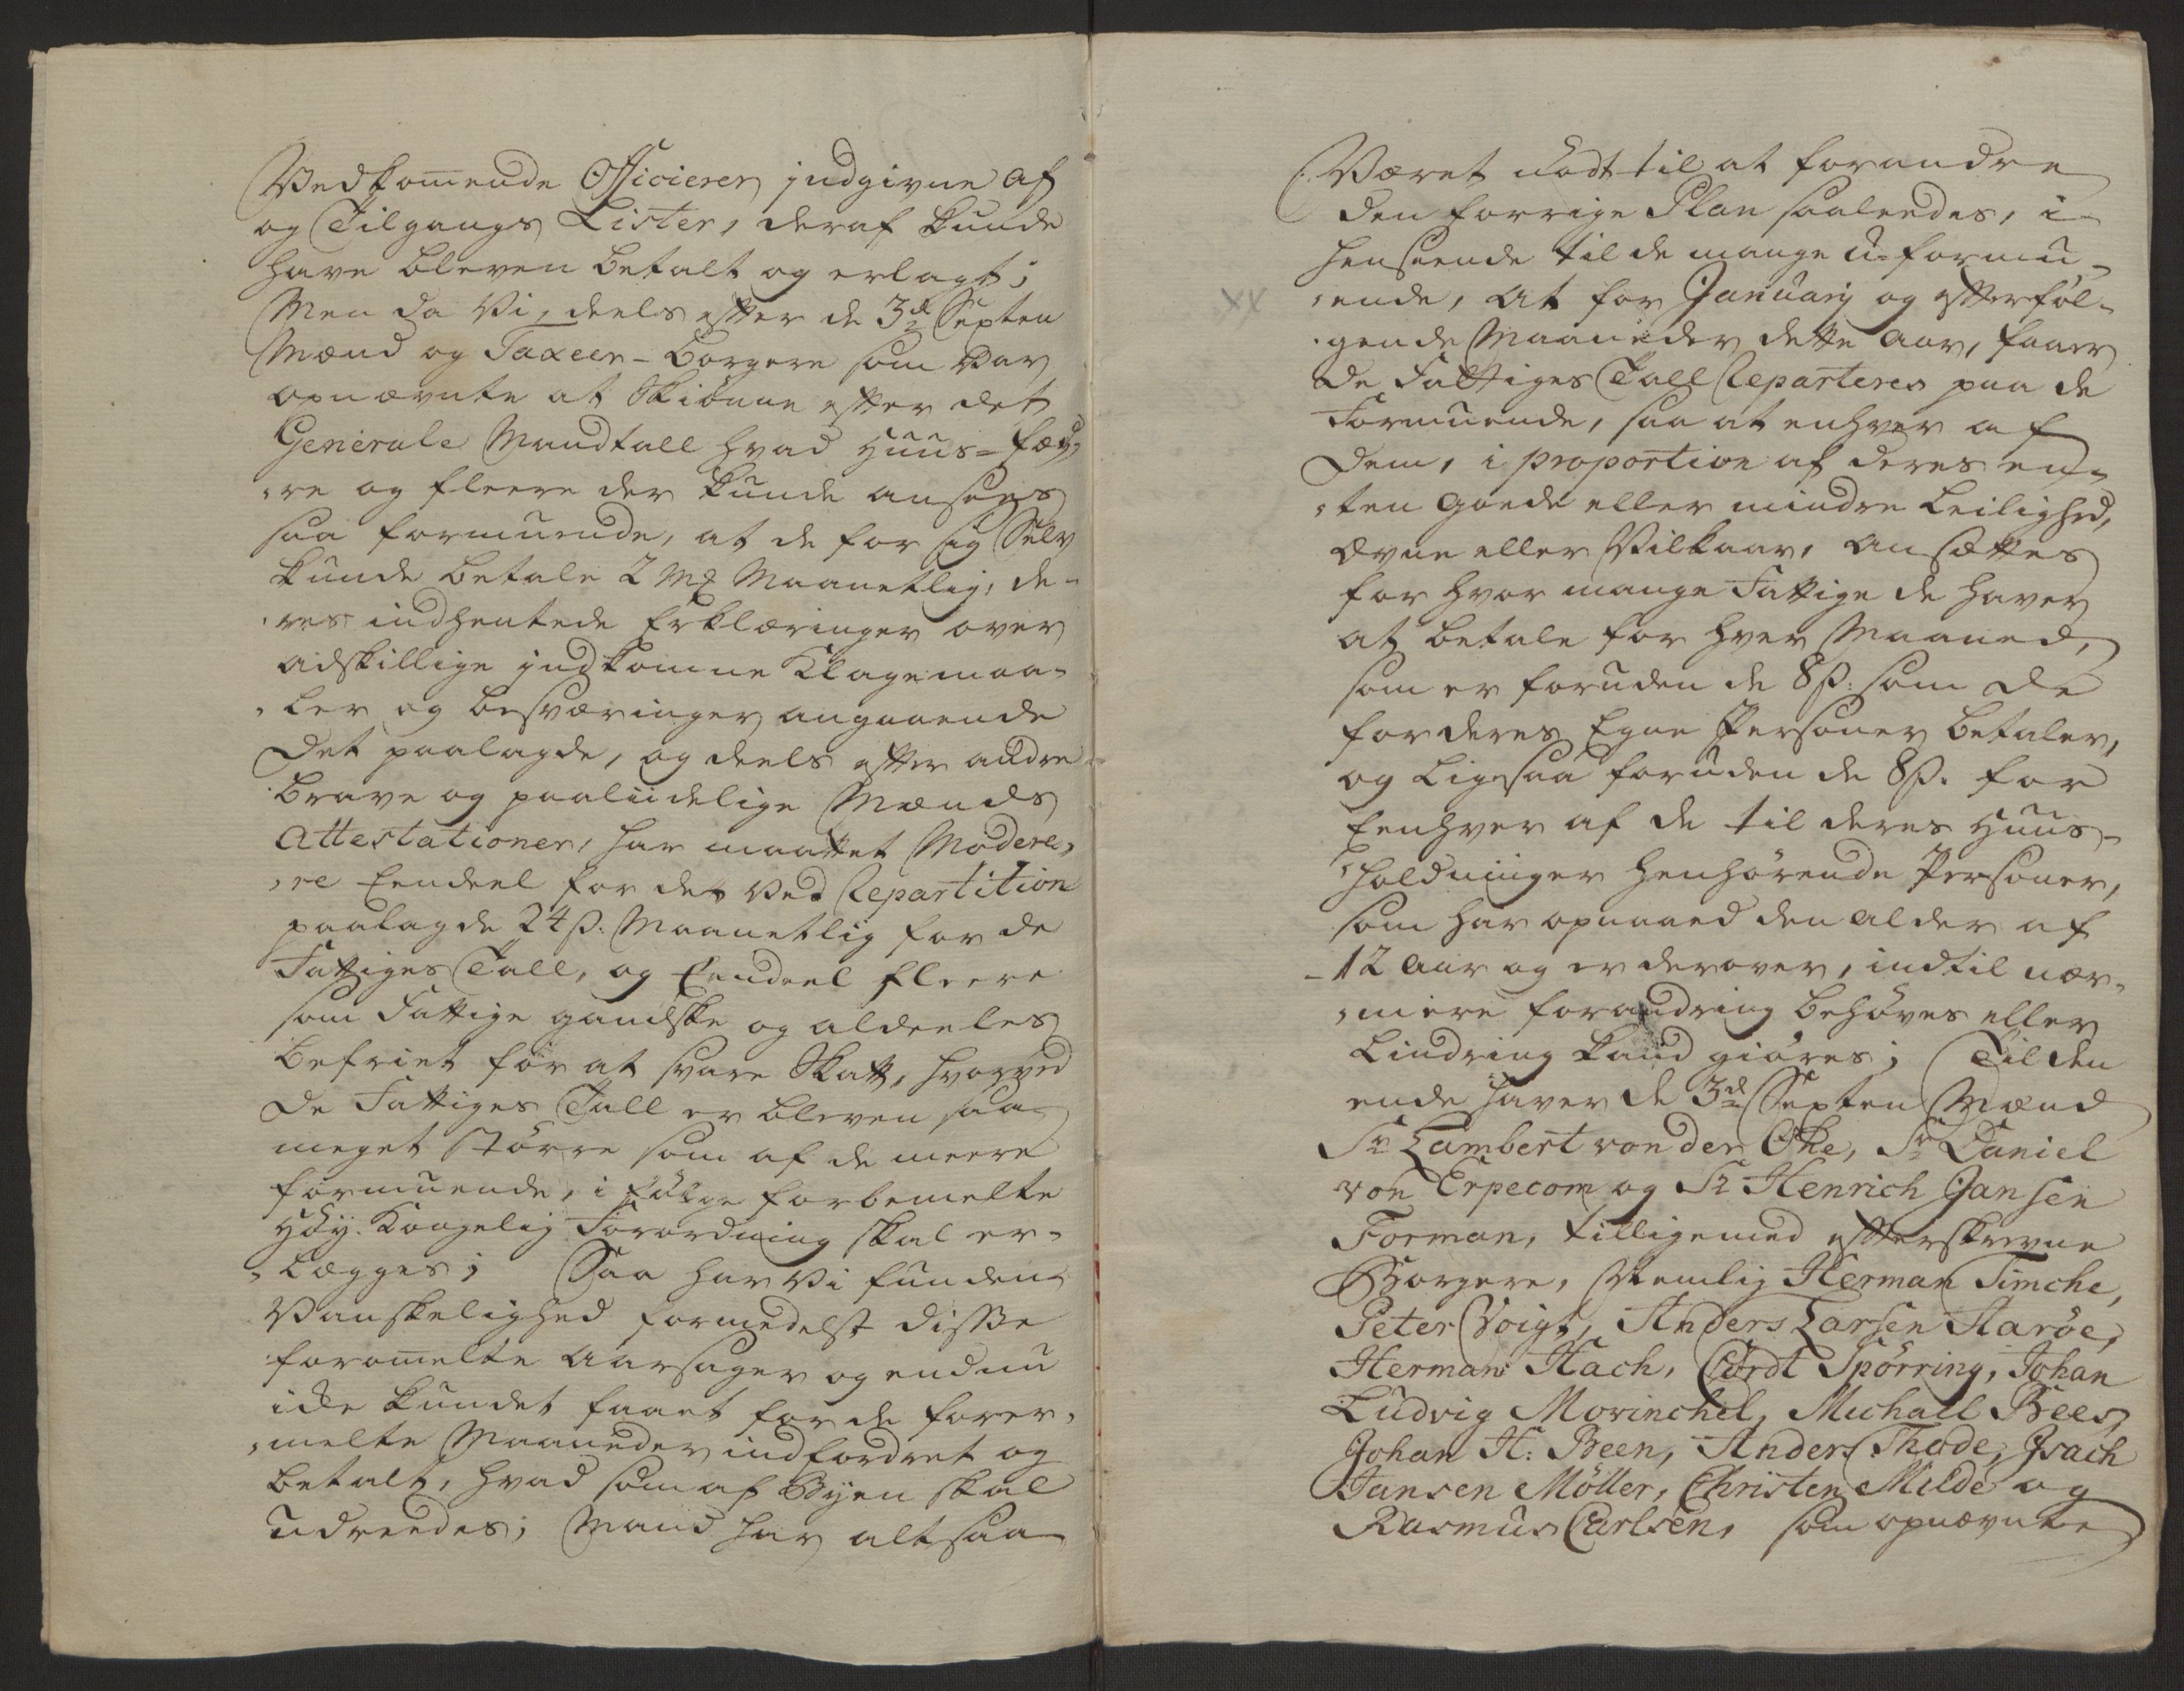 Vedkom̄ende Officierer indgivne af
og Tilgangs Lister, deraf kunde
have bleven betalt og erlagt;
Men da Vi, deels efter de 3de Sexten
Mænd og Taxeer-borgere som var
opnævnte at Skiønne efter det
Generale Mandtall hvad Huus-fæd,
,re og fleere der kunde ansees
saa formuende, at de for sig Selv
kunde betale 2 mk Maanetlig, de-
,res indhentede Erklæringer over
adskillige indkomne Klagemaa-
,ler og besværinger angaaende
Det paalagde, og deels efter andre
brave og paaliidelige Mænds
Attestationer, har maattet Modere,
,re Eendeel for det ved Repartition
paalagde 24 ß. Maanetlig for de
Fattiges Tall, og Eendeel fleere
som Fattige gandske og aldeeles
befriet for at svare Skatt, hvorved
De Fattiges Tall er bleven saa
meget større som af de meere
formuende, i følge forbemelte
Høy. Kongelig Forordning skal er-
,lægges; Saa har Vi funden
Vanskelighed formedelst disse
foromelte Aarsager og endnu
icke kundet faaet for de forer,
,melte Maaneder indfordret og
betalt, hvad som af Byen skal
udreedes; Mand har altsaa
Været nødt til at forandre
den forrige Plan saaleedes, i
henseende til de mange u-formu-
,ende, At for January og efterføl-
,gende Maaneder dette Aar, faaer
De Fattiges Tall Reparteres paa de
Formuende, saa at enhver af
Dem, i proportion af deres en-
,ten goede eller mindre Leilighed,
Evne eller Vilkaar, ansættes
for hvor mange Fattige de haver
at betale for hver Maaned,
som er foruden de 8 ß. som de
for deres Egne Personer betaler,
og Ligesaa foruden de 8 ß. for
Eenhver af de til deres Huus-
,holdninger henhørende Personer,
som har opnaaed den alder af
12 Aar og er derover, indtil nær-
,mere forandring behøves eller
Lindring kand giøres; Til den
ende haver de 3de Sexten Mænd
Sr Lambert von der Ohe, Sr Daniel
von Erpecom og Sr Henrich Jansen
Forman, tilligemed efterskrevne
Borgere, Nemlig Herman Timche,
Peter Voigt, Anders Larsen Aarøe,
Herman Hach, Cordt Spørring, Johan
Ludvig Morinchel, Michael Bees,
Johan H: Been, Anders Thode, Isach
Jansen Møller, Christen Milde og
Rasmus Carlsen, som opnævnte